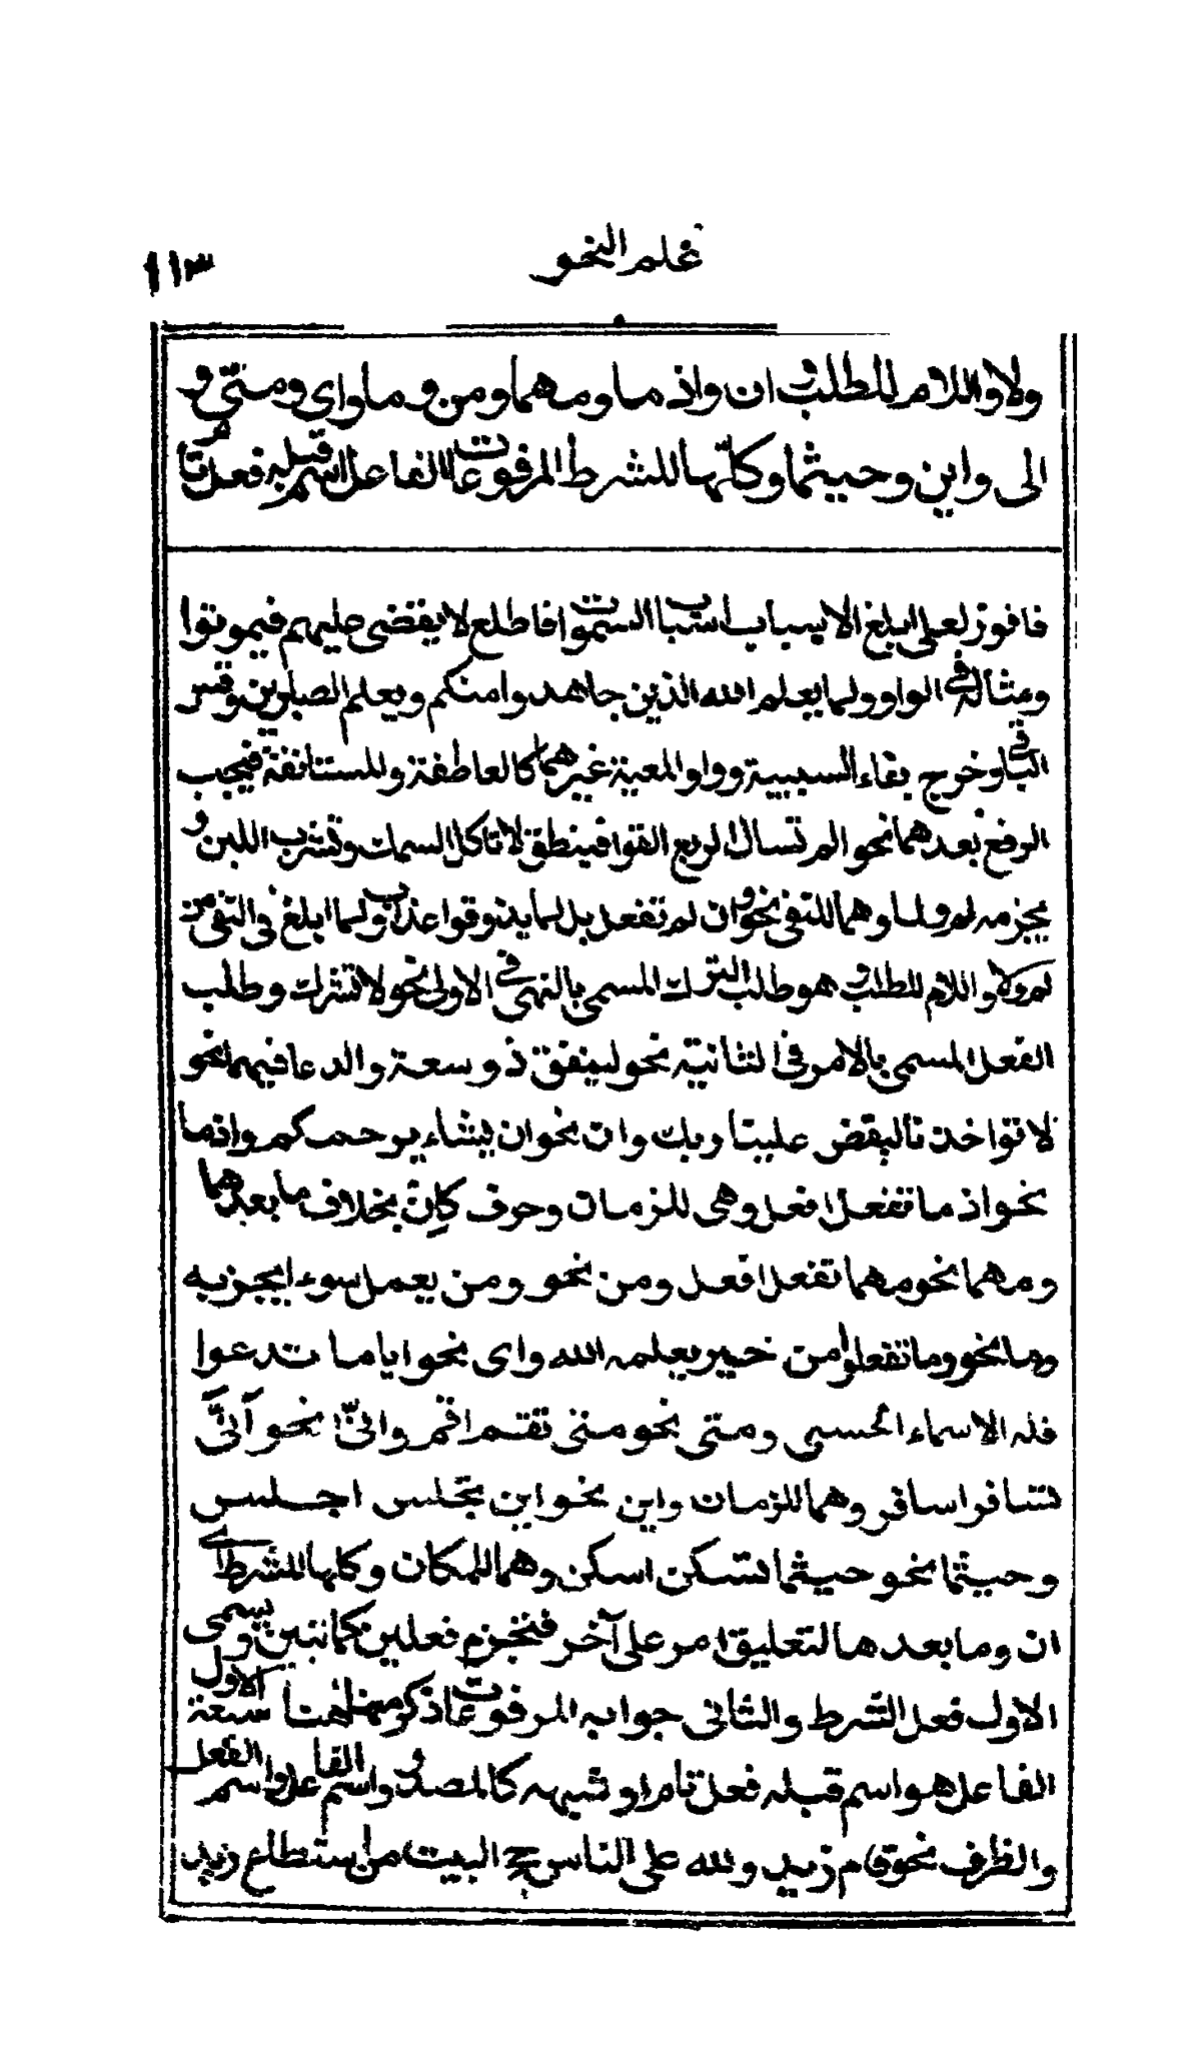 علم النحو
١١٣
ولا واللام للطلب وان واذ ما ومهما ومن وما واي ومتى و
انى واين وحيثما وكلها للشرط المرفوعات الفاعل اسم قبله فعل تام
فافوز لعلي ابلغ الاسباب اسباب السموات فاطلع لا يقضى عليهم فيموتوا
ومثاله في الواو ولما يعلم الله الذين جاهدوا منكم ويعلم الصابرين وقس
الباقي وخرج بفاء السببية وواو المعية غيرهما كالعاطفة والمستانفة فيجب
الرفع بعدهما نحو الم تسال الربع القوا فينطق لا تاكل السمك وتشرب اللبن و
يجزمه لم ولما وهما للنفي نحو وان لم تفعل بل لما يذوقوا عذاب ولما ابلغ في النفي من
لم ولا واللام للطلب هو طلب الترك المسمى بالنهي في الاولى نحو لا تشرك وطلب
الفعل المسمى بالامر في الثانية نحو لينفق ذو سعة والدعا فيهما نحو
لا تواخذنا ليقض علينا ربك وان نحو ان يشاء يرحمكم واذما
نحو اذ ما تفعل افعل وهي للزمان وحرف كان بخلاف ما بعدهما
ومهما نحو مهما تفعل افعل ومن نحو ومن يعمل سوء ايجزبه
وما نحو وما تفعلوا من خير يعلمه الله واي نحو ايا ما تدعوا
فله الاسماء الحسنى ومتى نحو متى تقم اقم وانّى نحو أنّى
تسافر اسافر وهما للزمان واين نحو اين تجلس اجلس
وحيثما نحو حيثما تسكن اسكن وهما للمكان وكلها للشرط اى
ان وما بعدها لتعليق امر على آخر فتجزم فعلين كما تبين ويسمى
الاول فعل الشرط والثاني جوابه المرفوعات اذكر منها هنا سبعة الاول
الفاعل هو اسم قبله فعل تام او شبهه كالمصدر واسم الفاعل واسم الفعل
والظرف نحو قام زيد ولله على الناس حج البيت من استطاع زيد